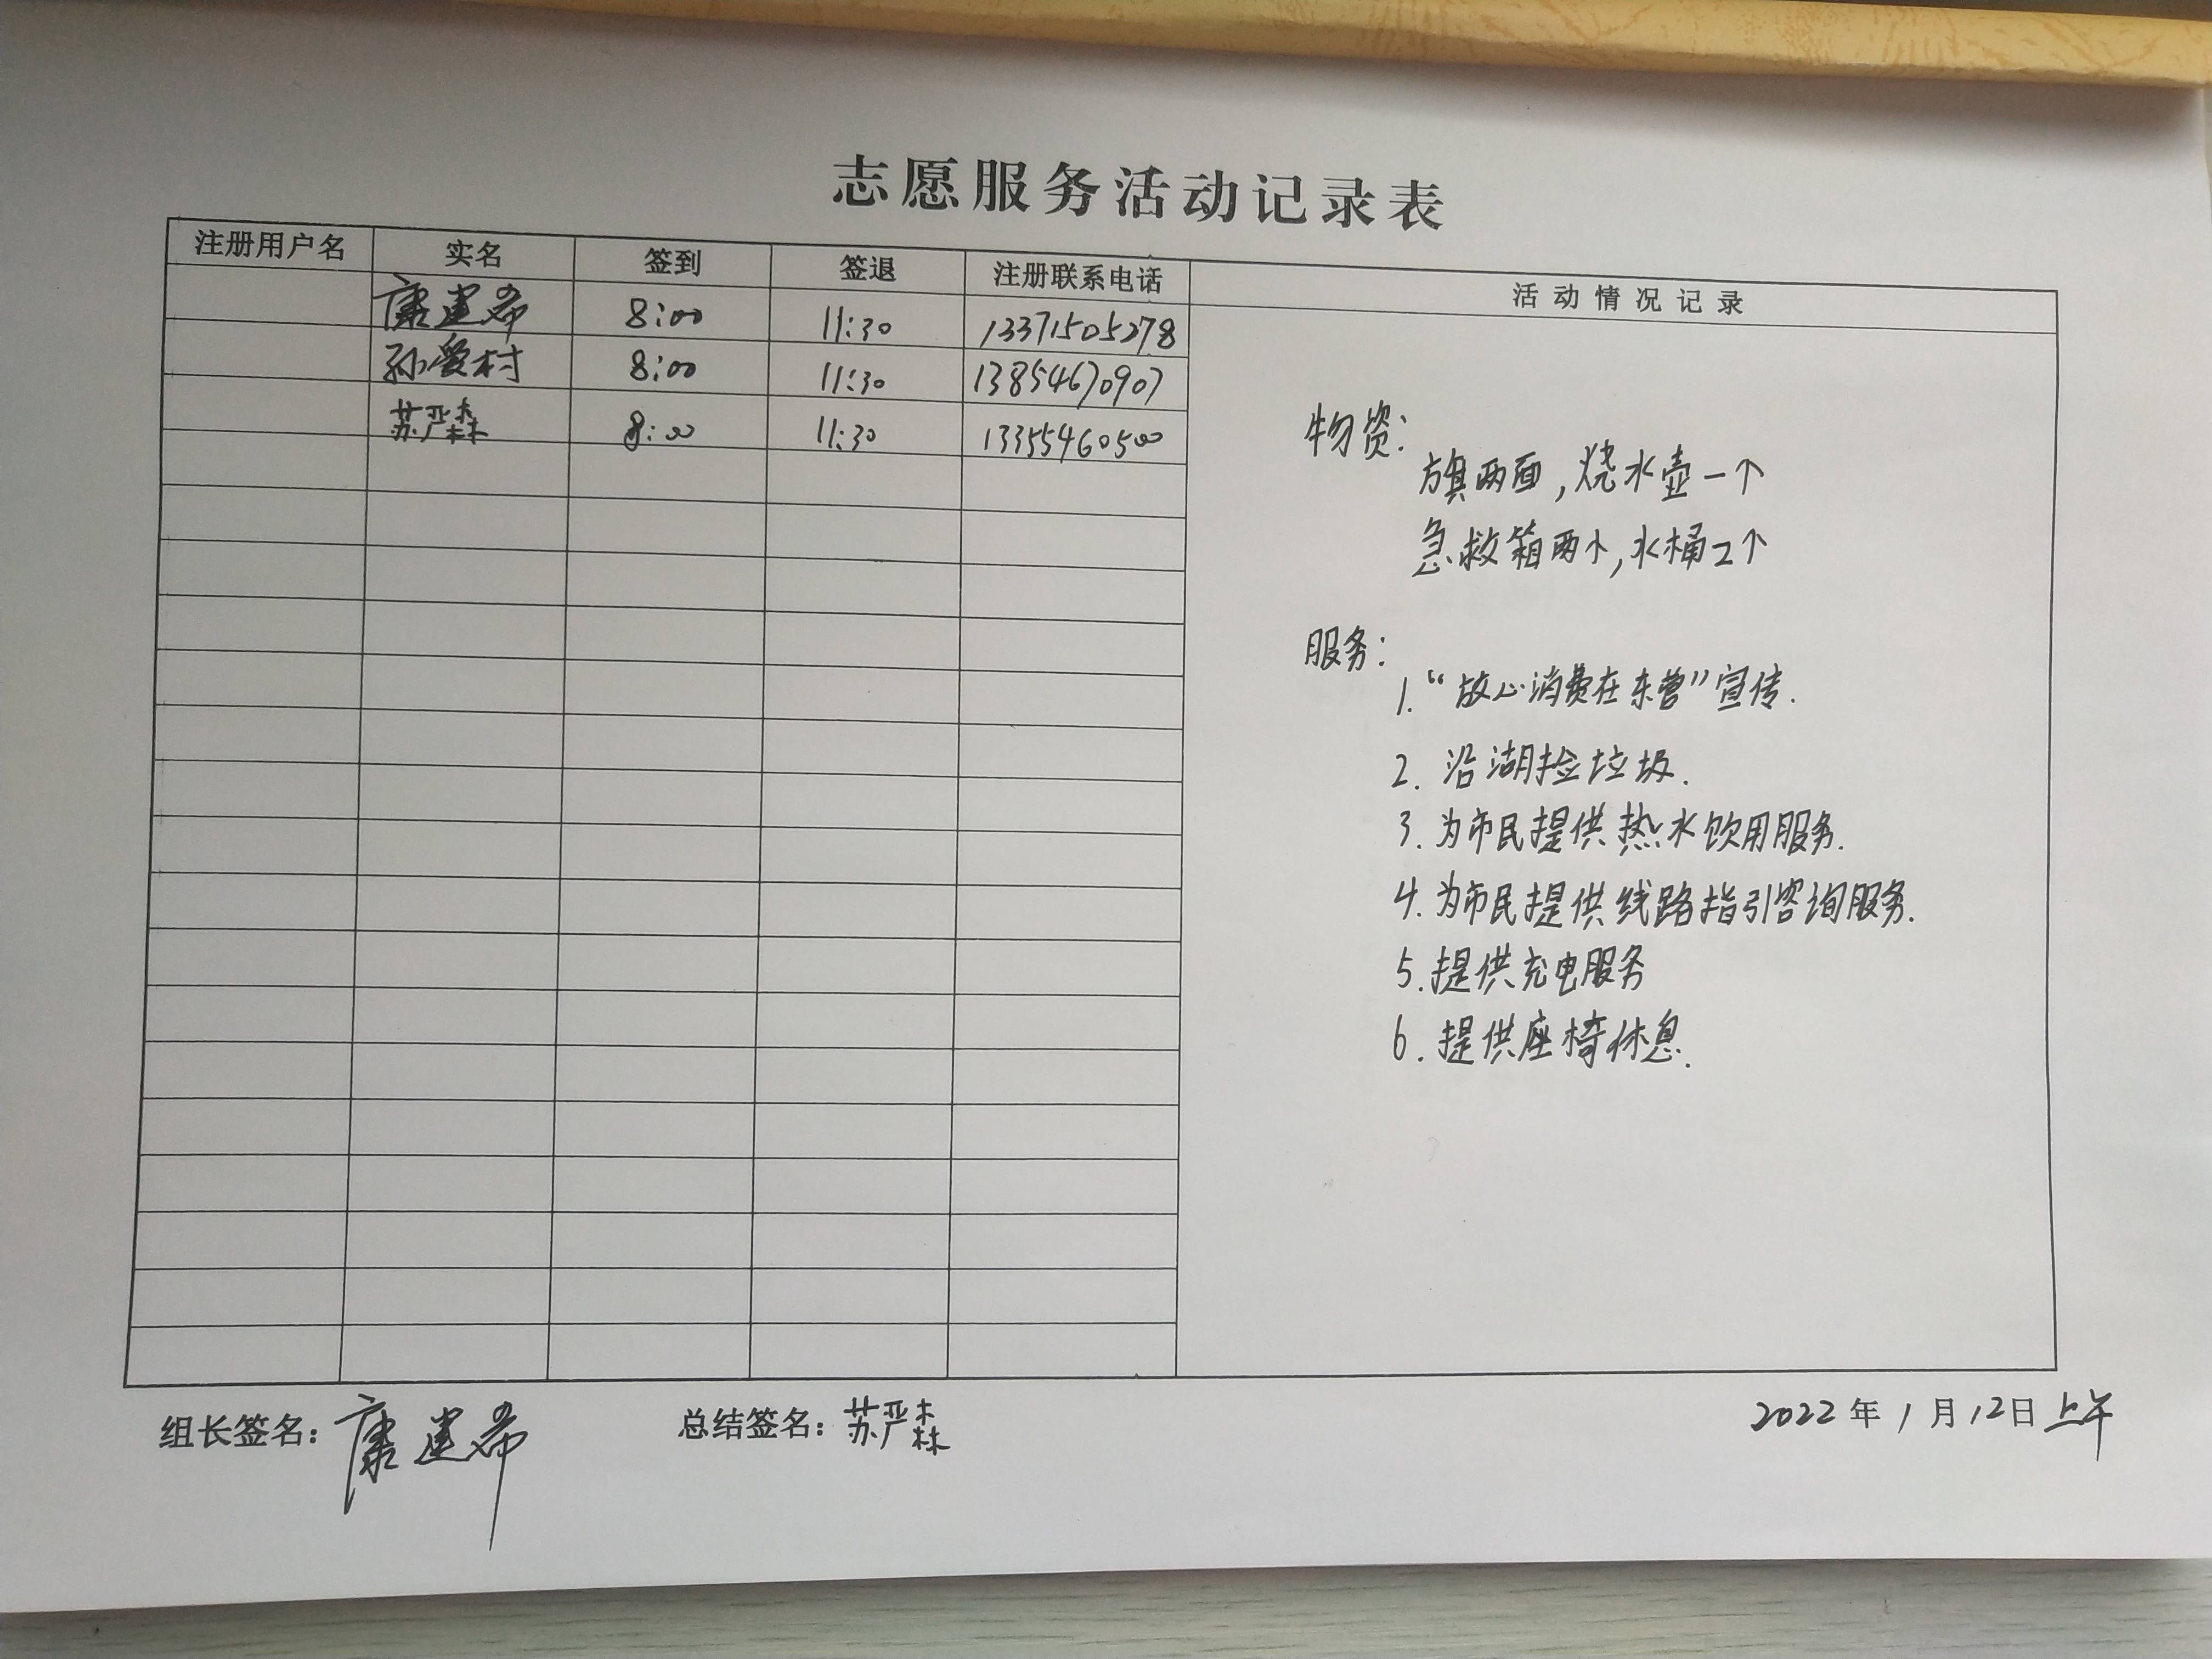 志愿服务活动记录表
注册用户名 实名 签到 签退 注册联系电话 活动情况记录
康建希 8:00 11:30 13371505278
孙爱村 8:00 11:30 13854670907
苏严森 8:00 11:30 13355460500
物资:
旗两面,烧水壶一个
急救箱两个,水桶2个
服务:
1.“放心消费在东营”宣传.
2. 沿湖捡垃圾.
3.为市民提供热水饮用服务.
4.为市民提供线路指引咨询服务.
5.提供充电服务
6.提供座椅休息.
组长签名:康建希 总结签名:苏严森 2022年1月12日上午